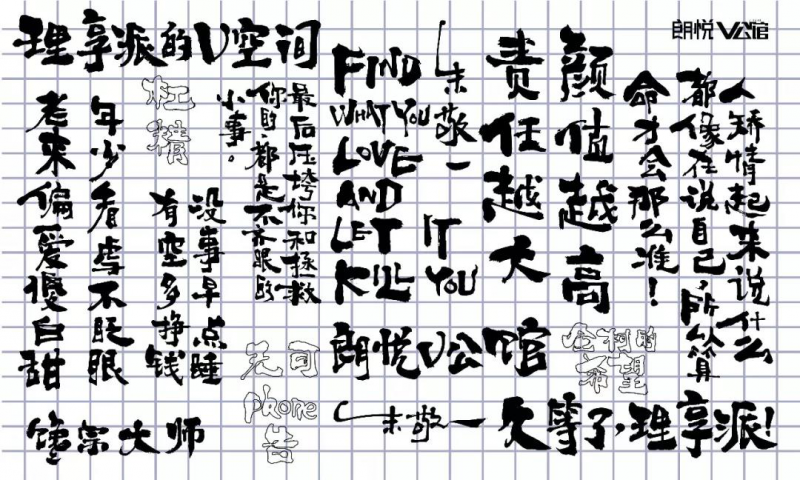 理享派的V空间
朗悦V公馆
年少看书不眨眼
老来偏爱傻白甜
杠精
没事早点睡
有空多挣钱
最后压垮你和拯救
你的,都是不起眼的
小事。
无可
phone
告
馋宗大师
FIND
WHAT YOU
LOVE
AND
LET IT
KILL YOU
朱敬一
颜值越高
责任越大
人矫情起来说什么
都像在说自己,所以算
命才会那么准!
朗悦V公馆
全村的
希望
朱敬一
久等了,理享派!